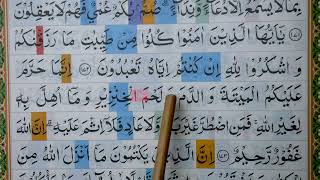 بِمَا لَا يَسْمَعُ اِلَّا دُعَآءً وَّنِدَآءً ؕ صُمٌّۢ بُكْمٌ عُمْیٌ فَهُمْ لَا يَعْقِلُوْنَ
يٰۤاَيُّهَا الَّذِيْنَ اٰمَنُوْا كُلُوْا مِنْ طَيِّبٰتِ مَا رَزَقْنٰكُمْ
وَ اشْكُرُوْا لِلّٰهِ اِنْ كُنْتُمْ اِيَّاهُ تَعْبُدُوْنَ ﴿۱۷۲﴾ اِنَّمَا حَرَّمَ
عَلَيْكُمُ الْمَيْتَةَ وَ الدَّمَ وَ لَحْمَ الْخِنْزِيْرِ وَ مَاۤ اُهِلَّ بِهٖ
لِغَيْرِ اللّٰهِ ۚ فَمَنِ اضْطُرَّ غَيْرَ بَاغٍ وَّ لَا عَادٍ فَلَاۤ اِثْمَ عَلَيْهِ ؕ اِنَّ اللّٰهَ
غَفُوْرٌ رَّحِيْمٌ ﴿۱۷۳﴾ اِنَّ الَّذِيْنَ يَكْتُمُوْنَ مَاۤ اَنْزَلَ اللّٰهُ مِنَ